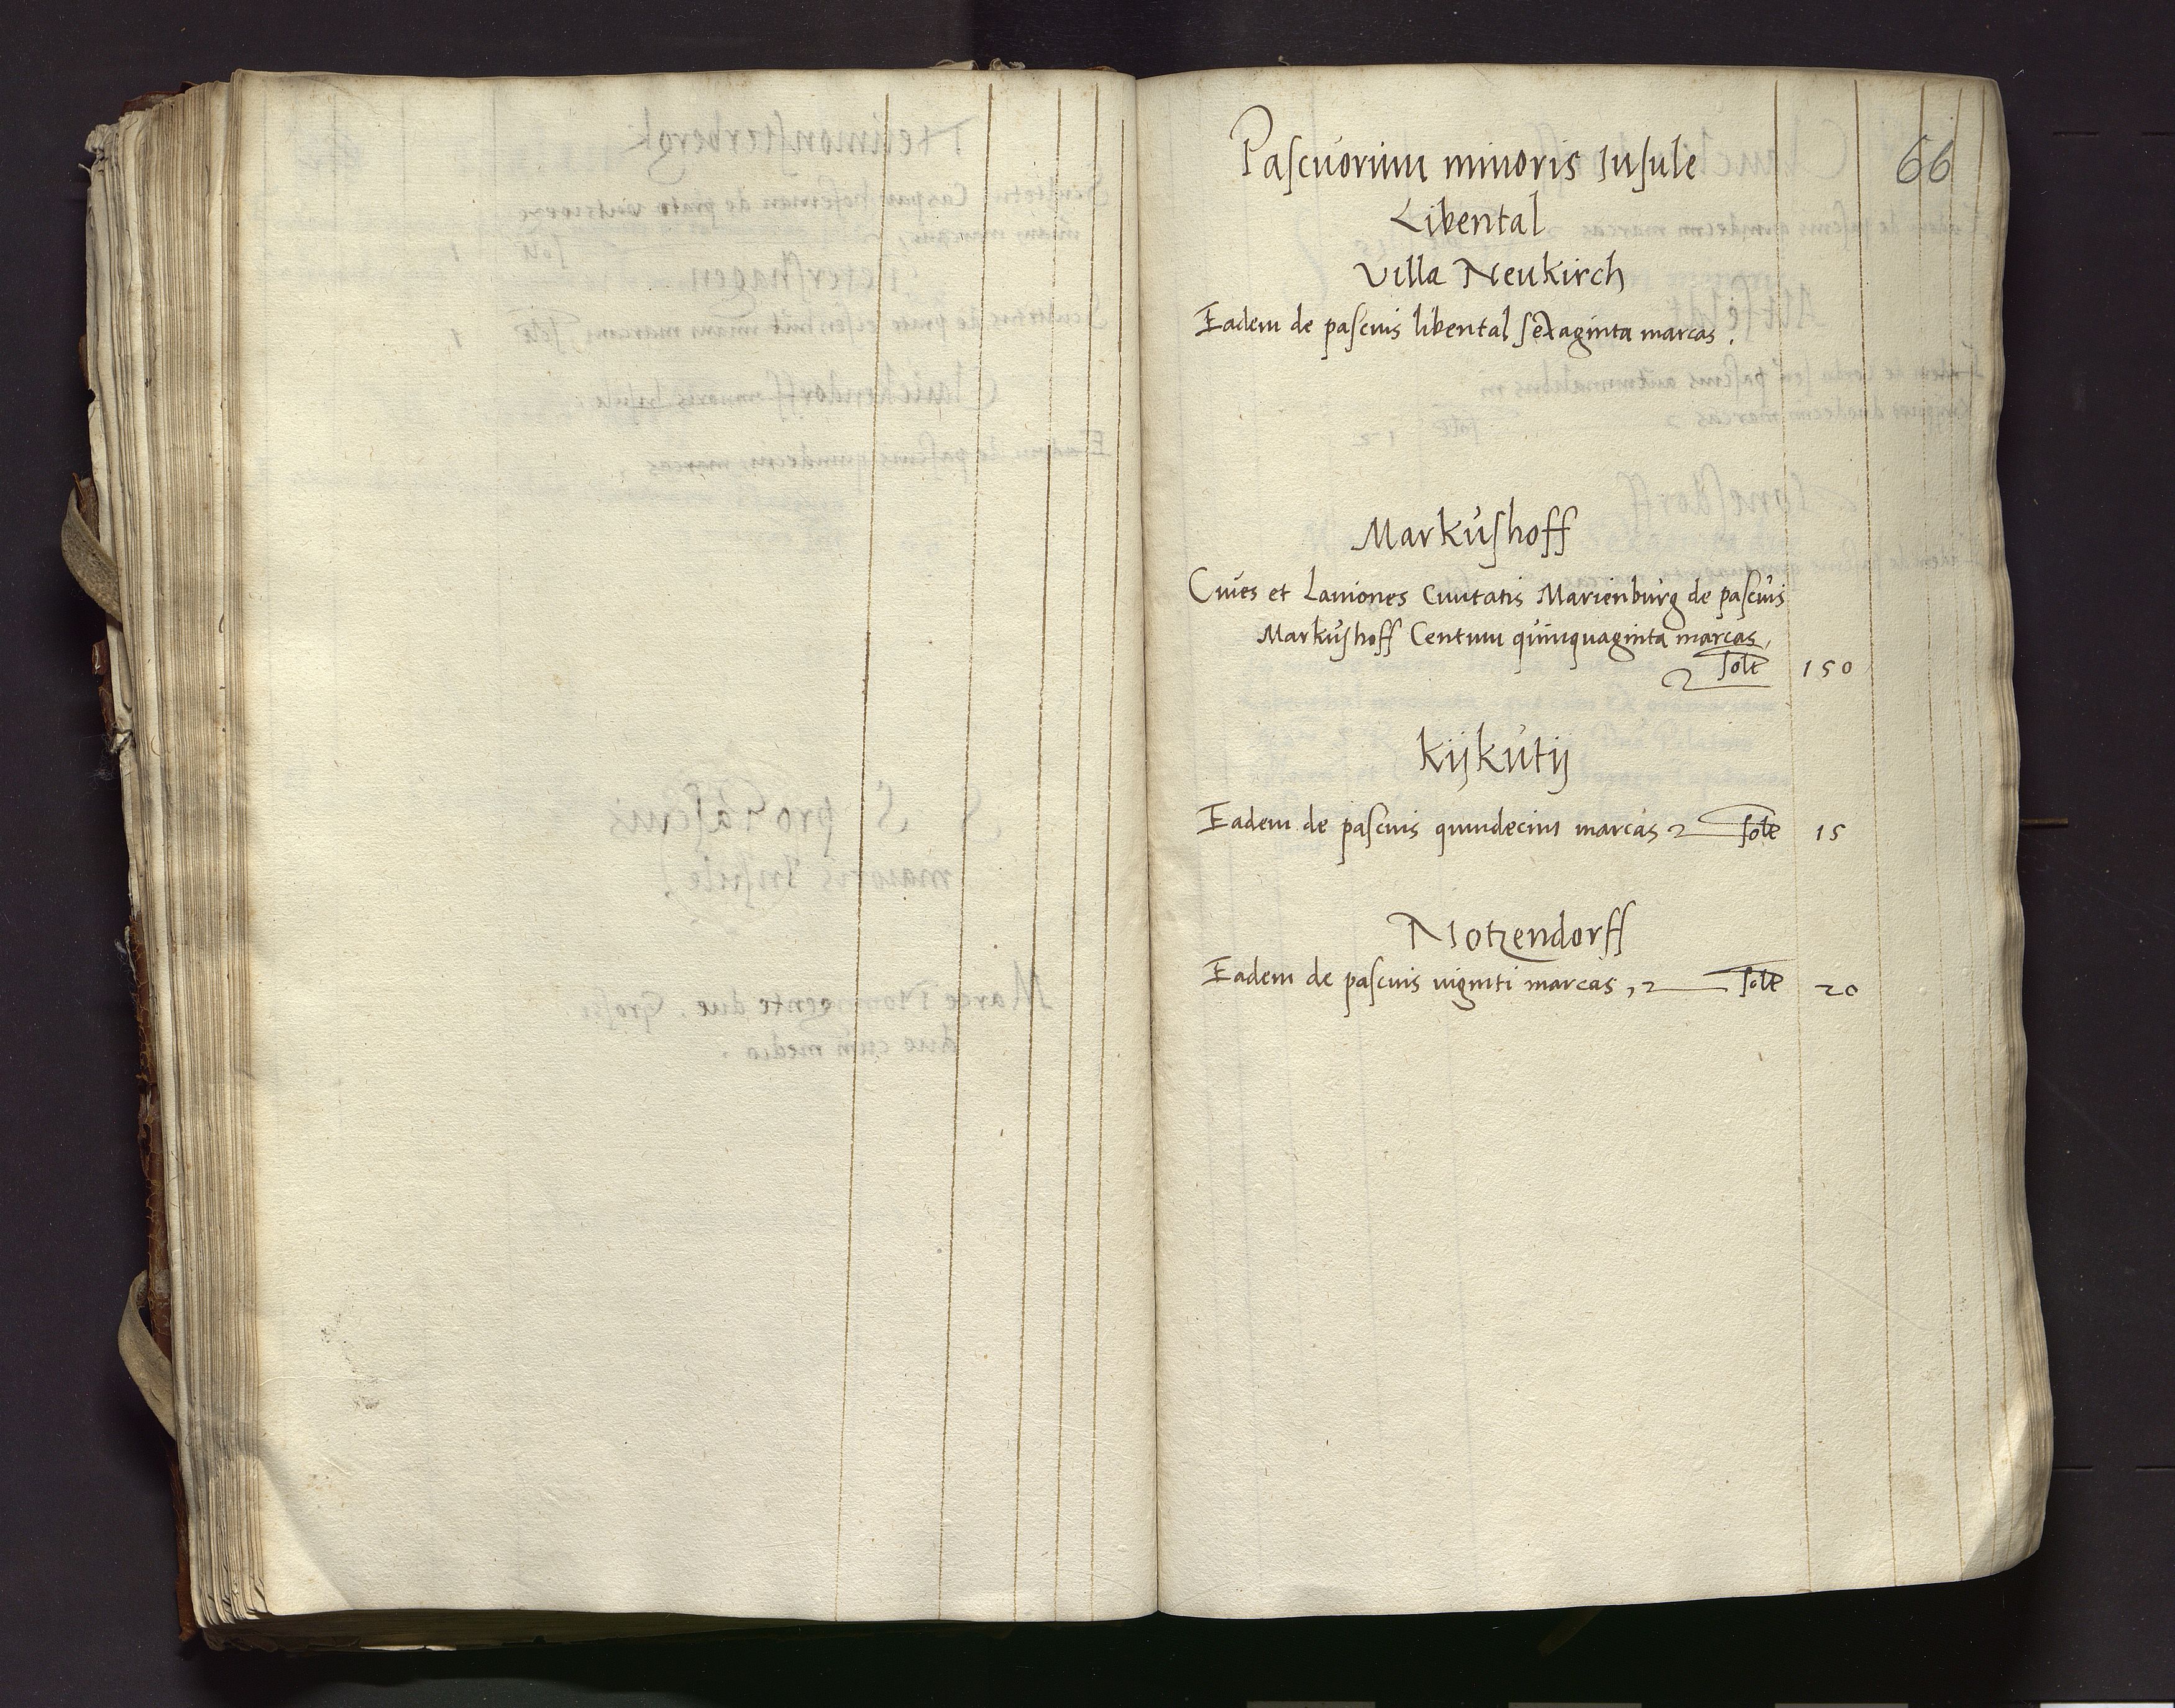 66
Pascuorum minoris Insule
Libental
Villa Neukirch
Eadem de pascuis libental sexaginta marcas.
Markushoff
Ciues et Laniones Ciuitatis Marienburg de pascuis
Markushoff Centum quinquaginta marcas,
solt 150
Kijkutij
Eadem de pascuis quindecim marcas solt 15
Notzendorff
Eadem de pascuis viginti marcas, solt 20